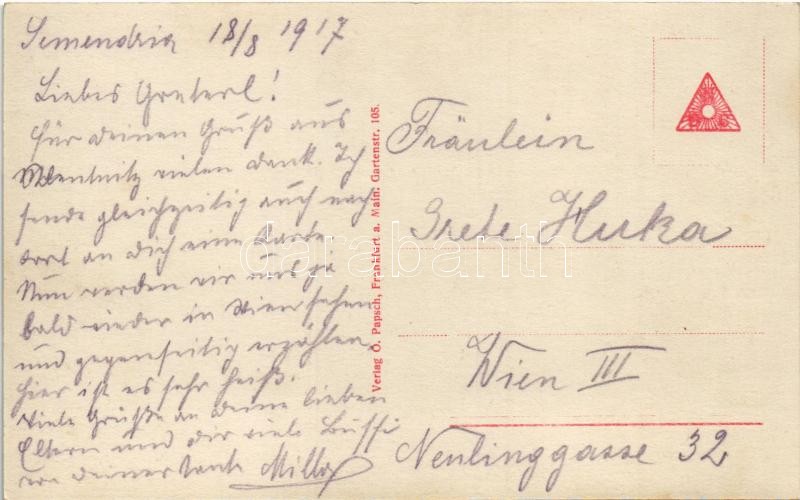 Semendria 18/8 1917
Liebes Greterl!
Für deinen Gruß aus
vielen Dank. Ich
sende gleichzeitig auch nach
dort an dich eine Karte.
Nun werden wir uns ja
bald wieder in Wien sehen
und gegenseitig erzählen.
Hier ist es sehr heiß.
Viele Grüße an deine lieben
Eltern und dir viele Bussi
von deiner Tante Milla
Verlag O. Papsch, Frankfurt a. Main. Gartenstr. 105.
Fräulein
Grete Huka
Wien III
Neulinggasse 32
darabanth